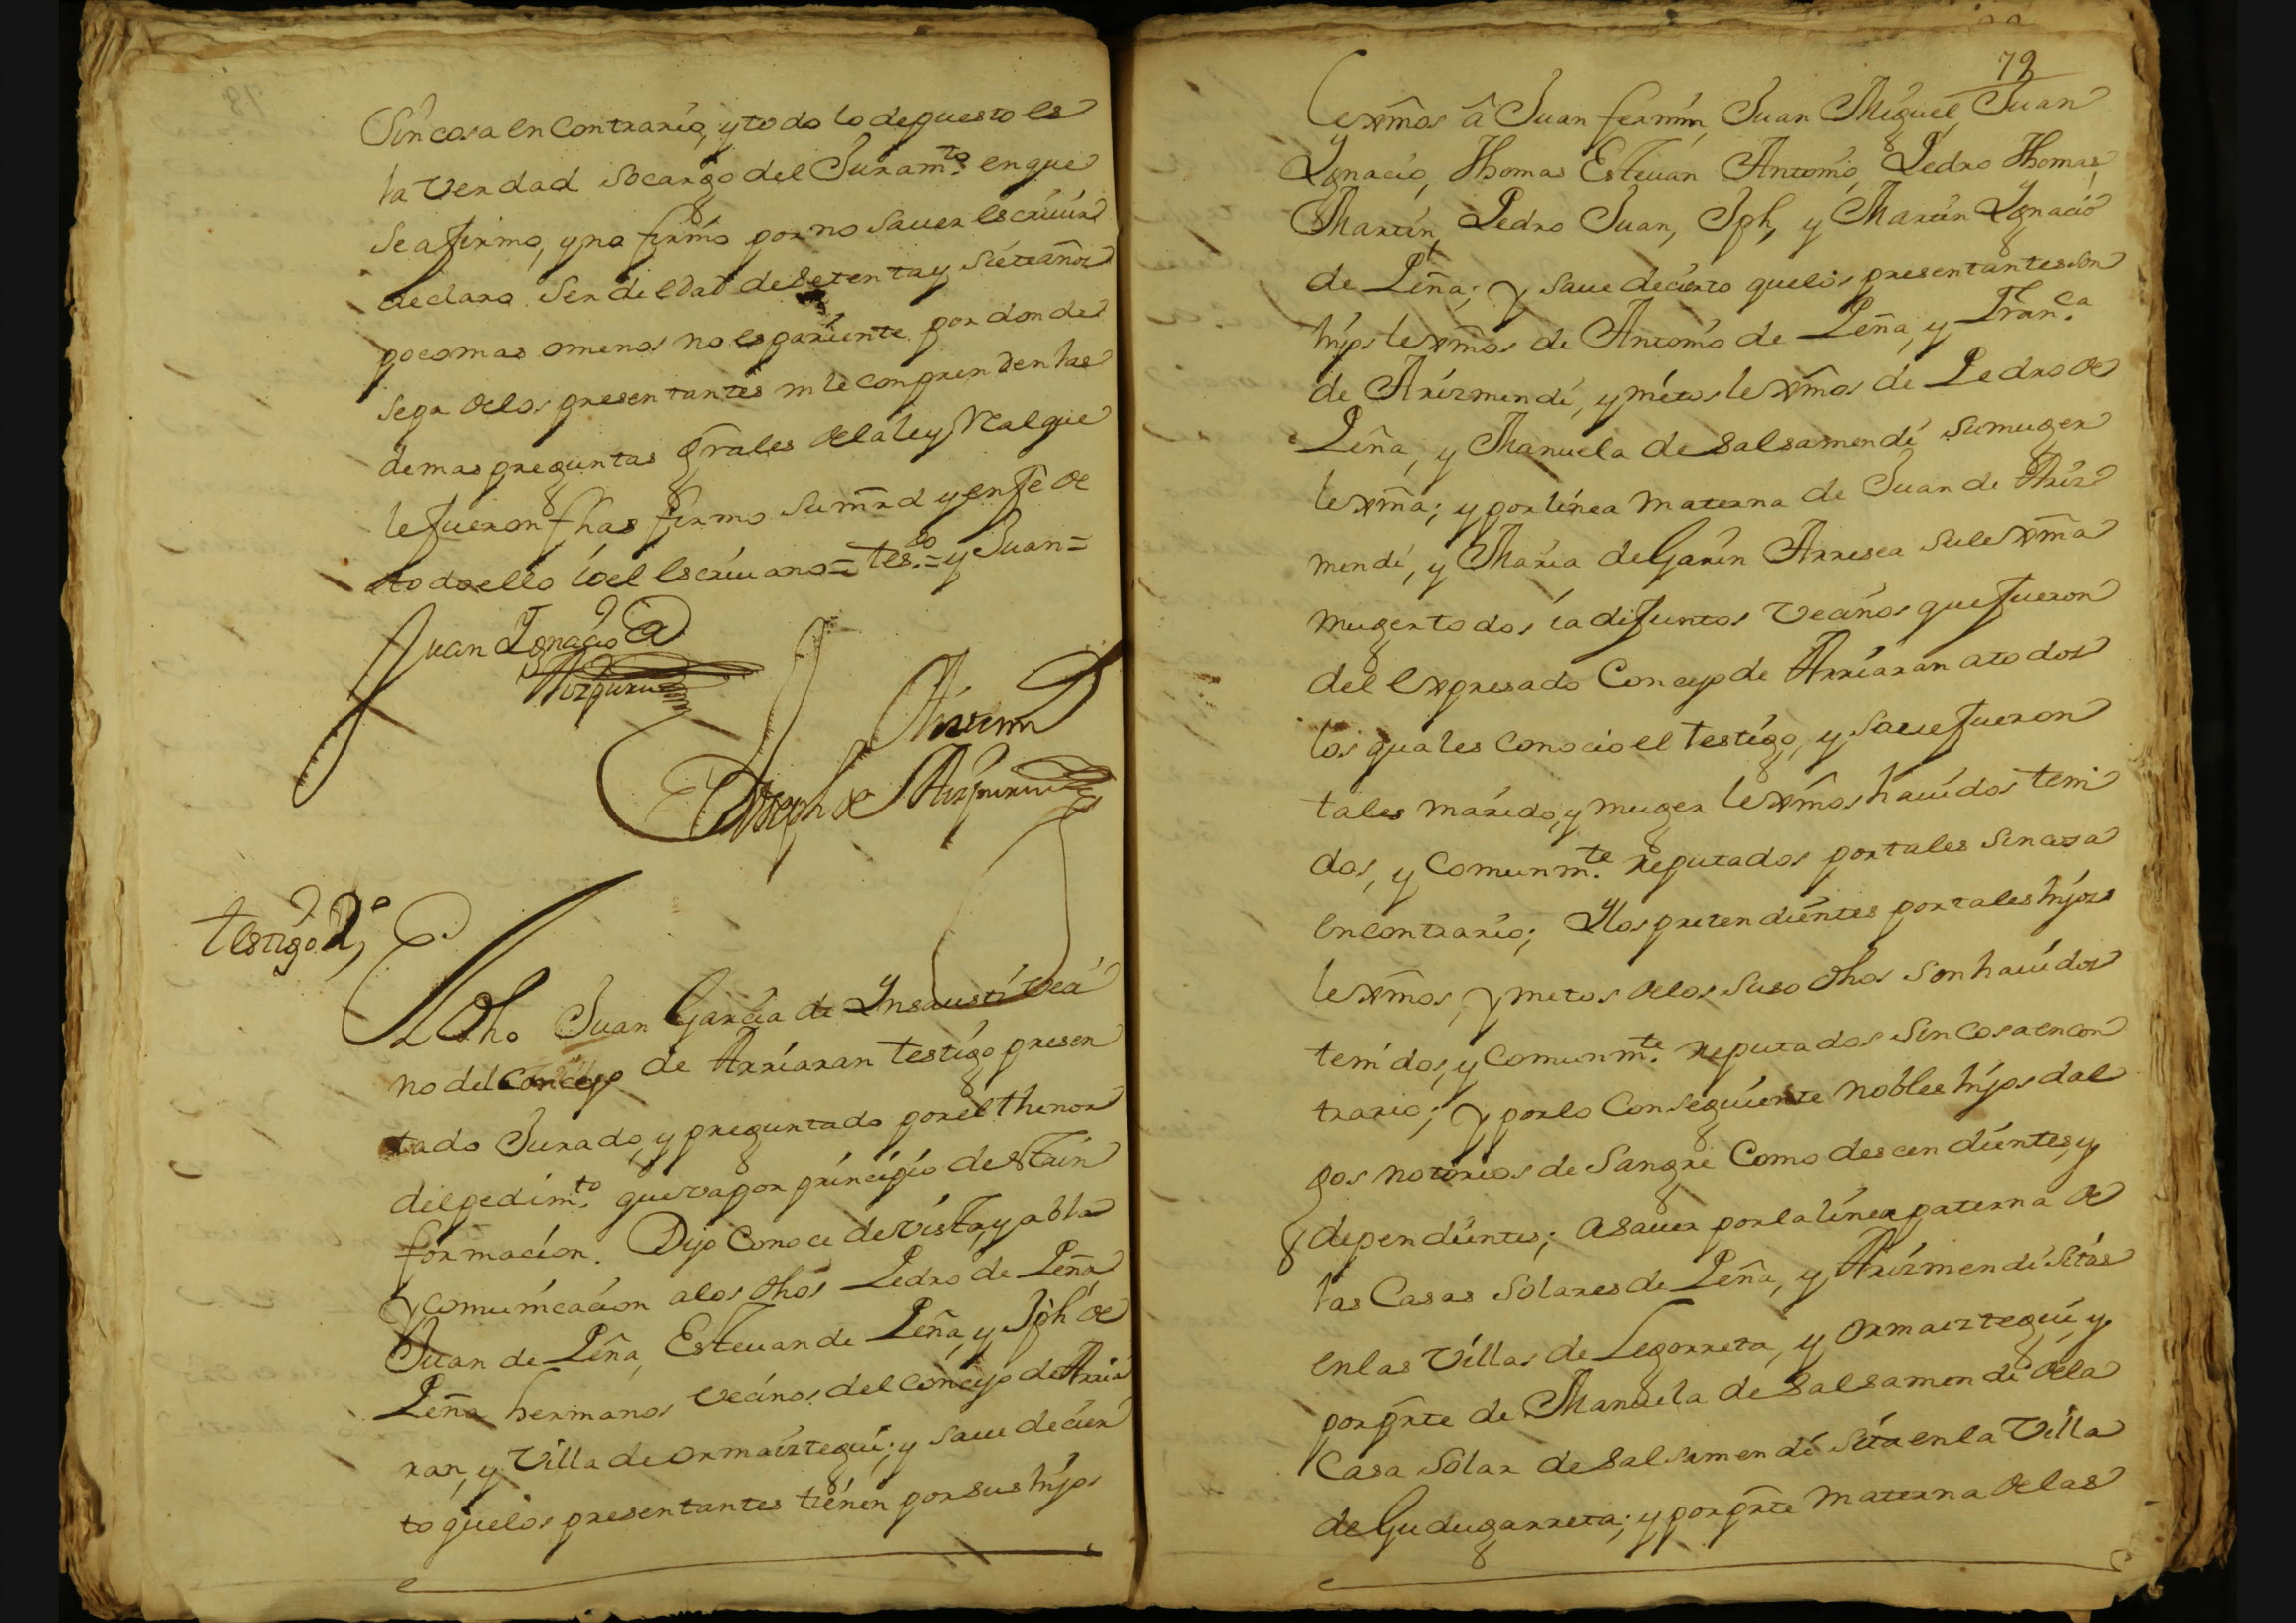 Sin cosa en Contrario, y todo lo depuesto es
la Verdad so cargo del Juram.to en que
se afirmo, y no firmo por no saver escriuir
declaro Ser de edad de Setenta y Siete años
poco mas o menos no es pariente por donde
sepa de los presentantes ni le conprenden las
demas preguntas Grales de la ley Real que
le fueron fhas firmo Su mrd y en fe de
todo ello io el escriuano = tes.do = y Juan =
Juan Ignacio de
Aizpuru
Ante mi
Joseph de Aizpuru
testigo 2.o
El dho Juan Garcia de Ynsausti veci
no del Concejo de Arriaran testigo presen
tado Jurado, y preguntado por el thenor
del pedim.to que va por principio de esta in
formacion. Dijo Conoce de vista, y abla
y comunicacion a los dhos Pedro de Peña
Juan de Peña, Esteuan de Peña, y Jph de
Peña hermanos vecinos del Concejo de Arria
ran, y Villa de ormaiztegui; y saue de cier
to que los presentantes tienen por sus hijos
79
lexmos â Juan fermin, Juan Miguel, Juan
Ignacio, Thomas Esteuan Antonio, Pedro Thomas,
Martin, Pedro Juan, Jph, y Martin Ignacio
de Peña; y saue de cierto que los presentantes son
hijos lexmos de Antonio de Peña, y Fran.ca
de Arizmendi, y nietos lexmos de Pedro de
Peña, y Manuela de Salsamendi su muger
lexma; y por linea materna de Juan de Ariz
mendi, y Maria de Garin Arrisea su lexma
muger todos ia difuntos vecinos que fueron
del expresado Concejo de Arriaran a todos
los quales conocio el testigo, y saue fueron
tales marido, y muger lexmos hauidos teni
dos, y Comunm.te reputados por tales sin cosa
en contrario; Y los pretendientes por tales hijos
lexmos, y nietos de los suso dhos son hauidos
tenidos, y Comunm.te reputados sin cosa en con
trario; y por lo Conseguiente nobles hijos dal
gos notorios de Sangre Como descendientes, y
dependientes; a saver por la linea paterna de
las Casas Solares de Peña, y Arizmendi sitas
en las Villas de Legorreta, y ormaiztegui y
por prte de Manuela de Salsamendi de la
Casa Solar de Salsamendi sita en la Villa
de Gudugarreta; y por prte materna de las